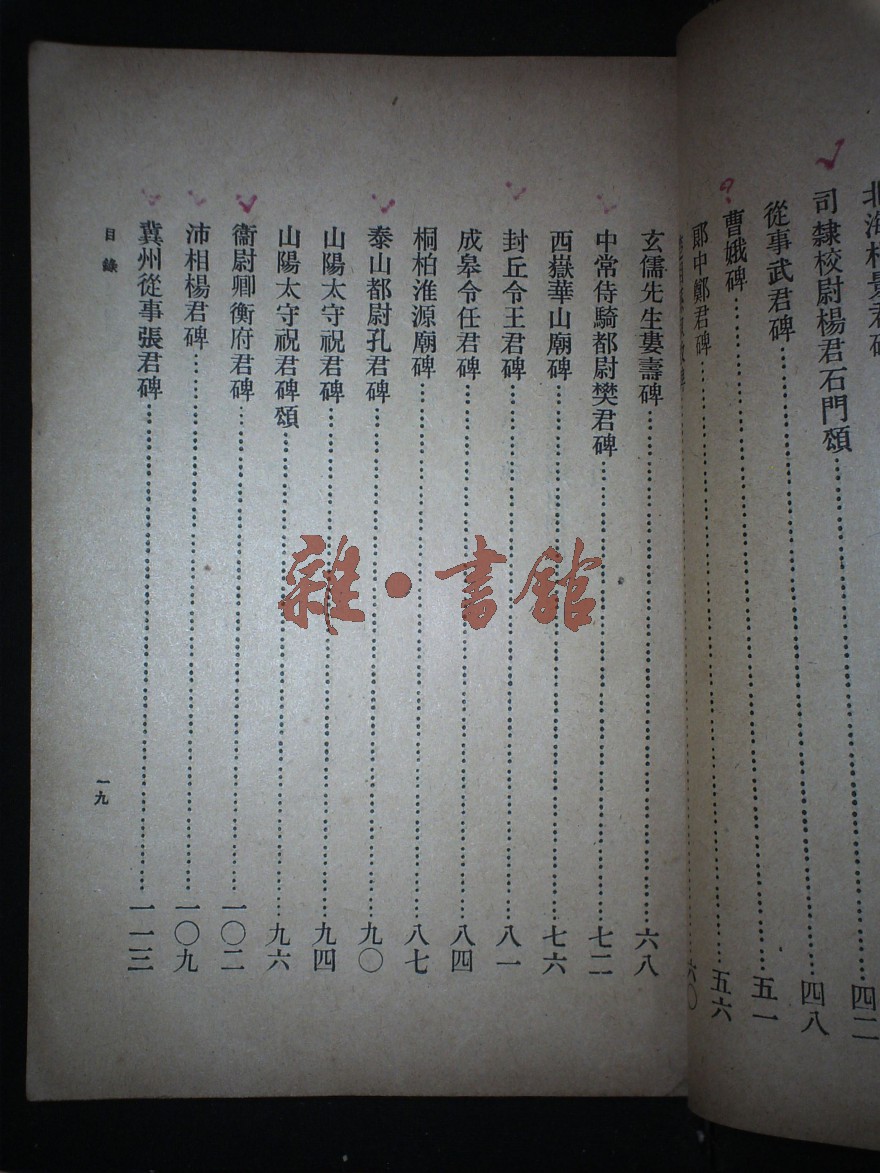 司隸校尉楊君石門頌 四八
從事武君碑 五一
曹娥碑 五六
郞中鄭君碑 六〇
玄儒先生婁壽碑 六八
中常侍騎都尉樊君碑 七二
西嶽華山廟碑 七六
封丘令王君碑 八一
成皋令任君碑 八四
桐柏淮源廟碑 八七
泰山都尉孔君碑 九〇
山陽太守祝君碑 九四
山陽太守祝君碑頌 九六
衞尉卿衡府君碑 一〇二
沛相楊君碑 一〇九
冀州從事張君碑 一一三
目錄
一九
雜·書館